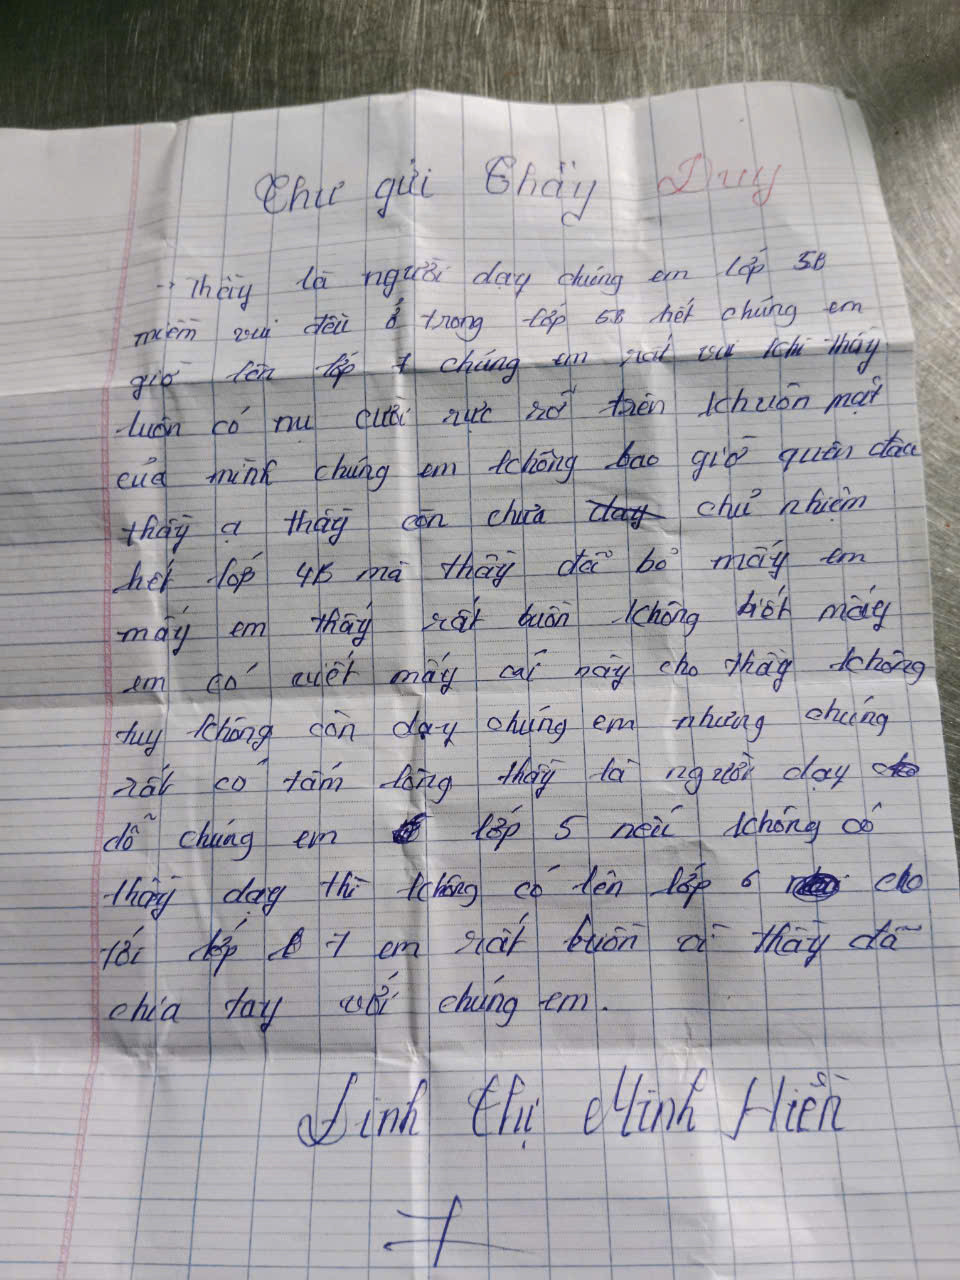 Thư gửi Thầy Duy
→ Thầy là người dạy chúng em lớp 5B
niềm vui đều ở trong lớp 5B hết chúng em
giờ lên lớp 7 chúng em rất vui khi thấy
luôn có nu cười rực rỡ trên khuôn mặt
của mình chúng em không bao giờ quên đâu
thầy ạ thầy còn chưa day chủ nhiệm
hết lớp 4B mà thầy đã bỏ mấy em
mấy em thấy rất buồn không biết mấy
em có viết mấy cái này cho thầy không
tuy không còn dạy chúng em nhưng chúng
rất có tấm lòng thầy là người dạy
dỗ chúng em lớp 5 nếu không có
thầy dạy thì không có lên lớp 6 cho
tới lớp 7 em rất buồn vì thầy đã
chia tay với chúng em.
Đinh thị Minh Hiền
7